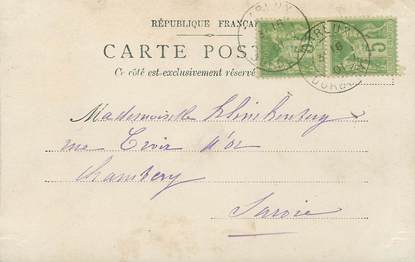 RÉPUBLIQUE FRANÇA
CARTE POST
Ce côté est exclusivement réservé
5
Mademoiselle
rue Croix d'or
Chambéry
Savoie